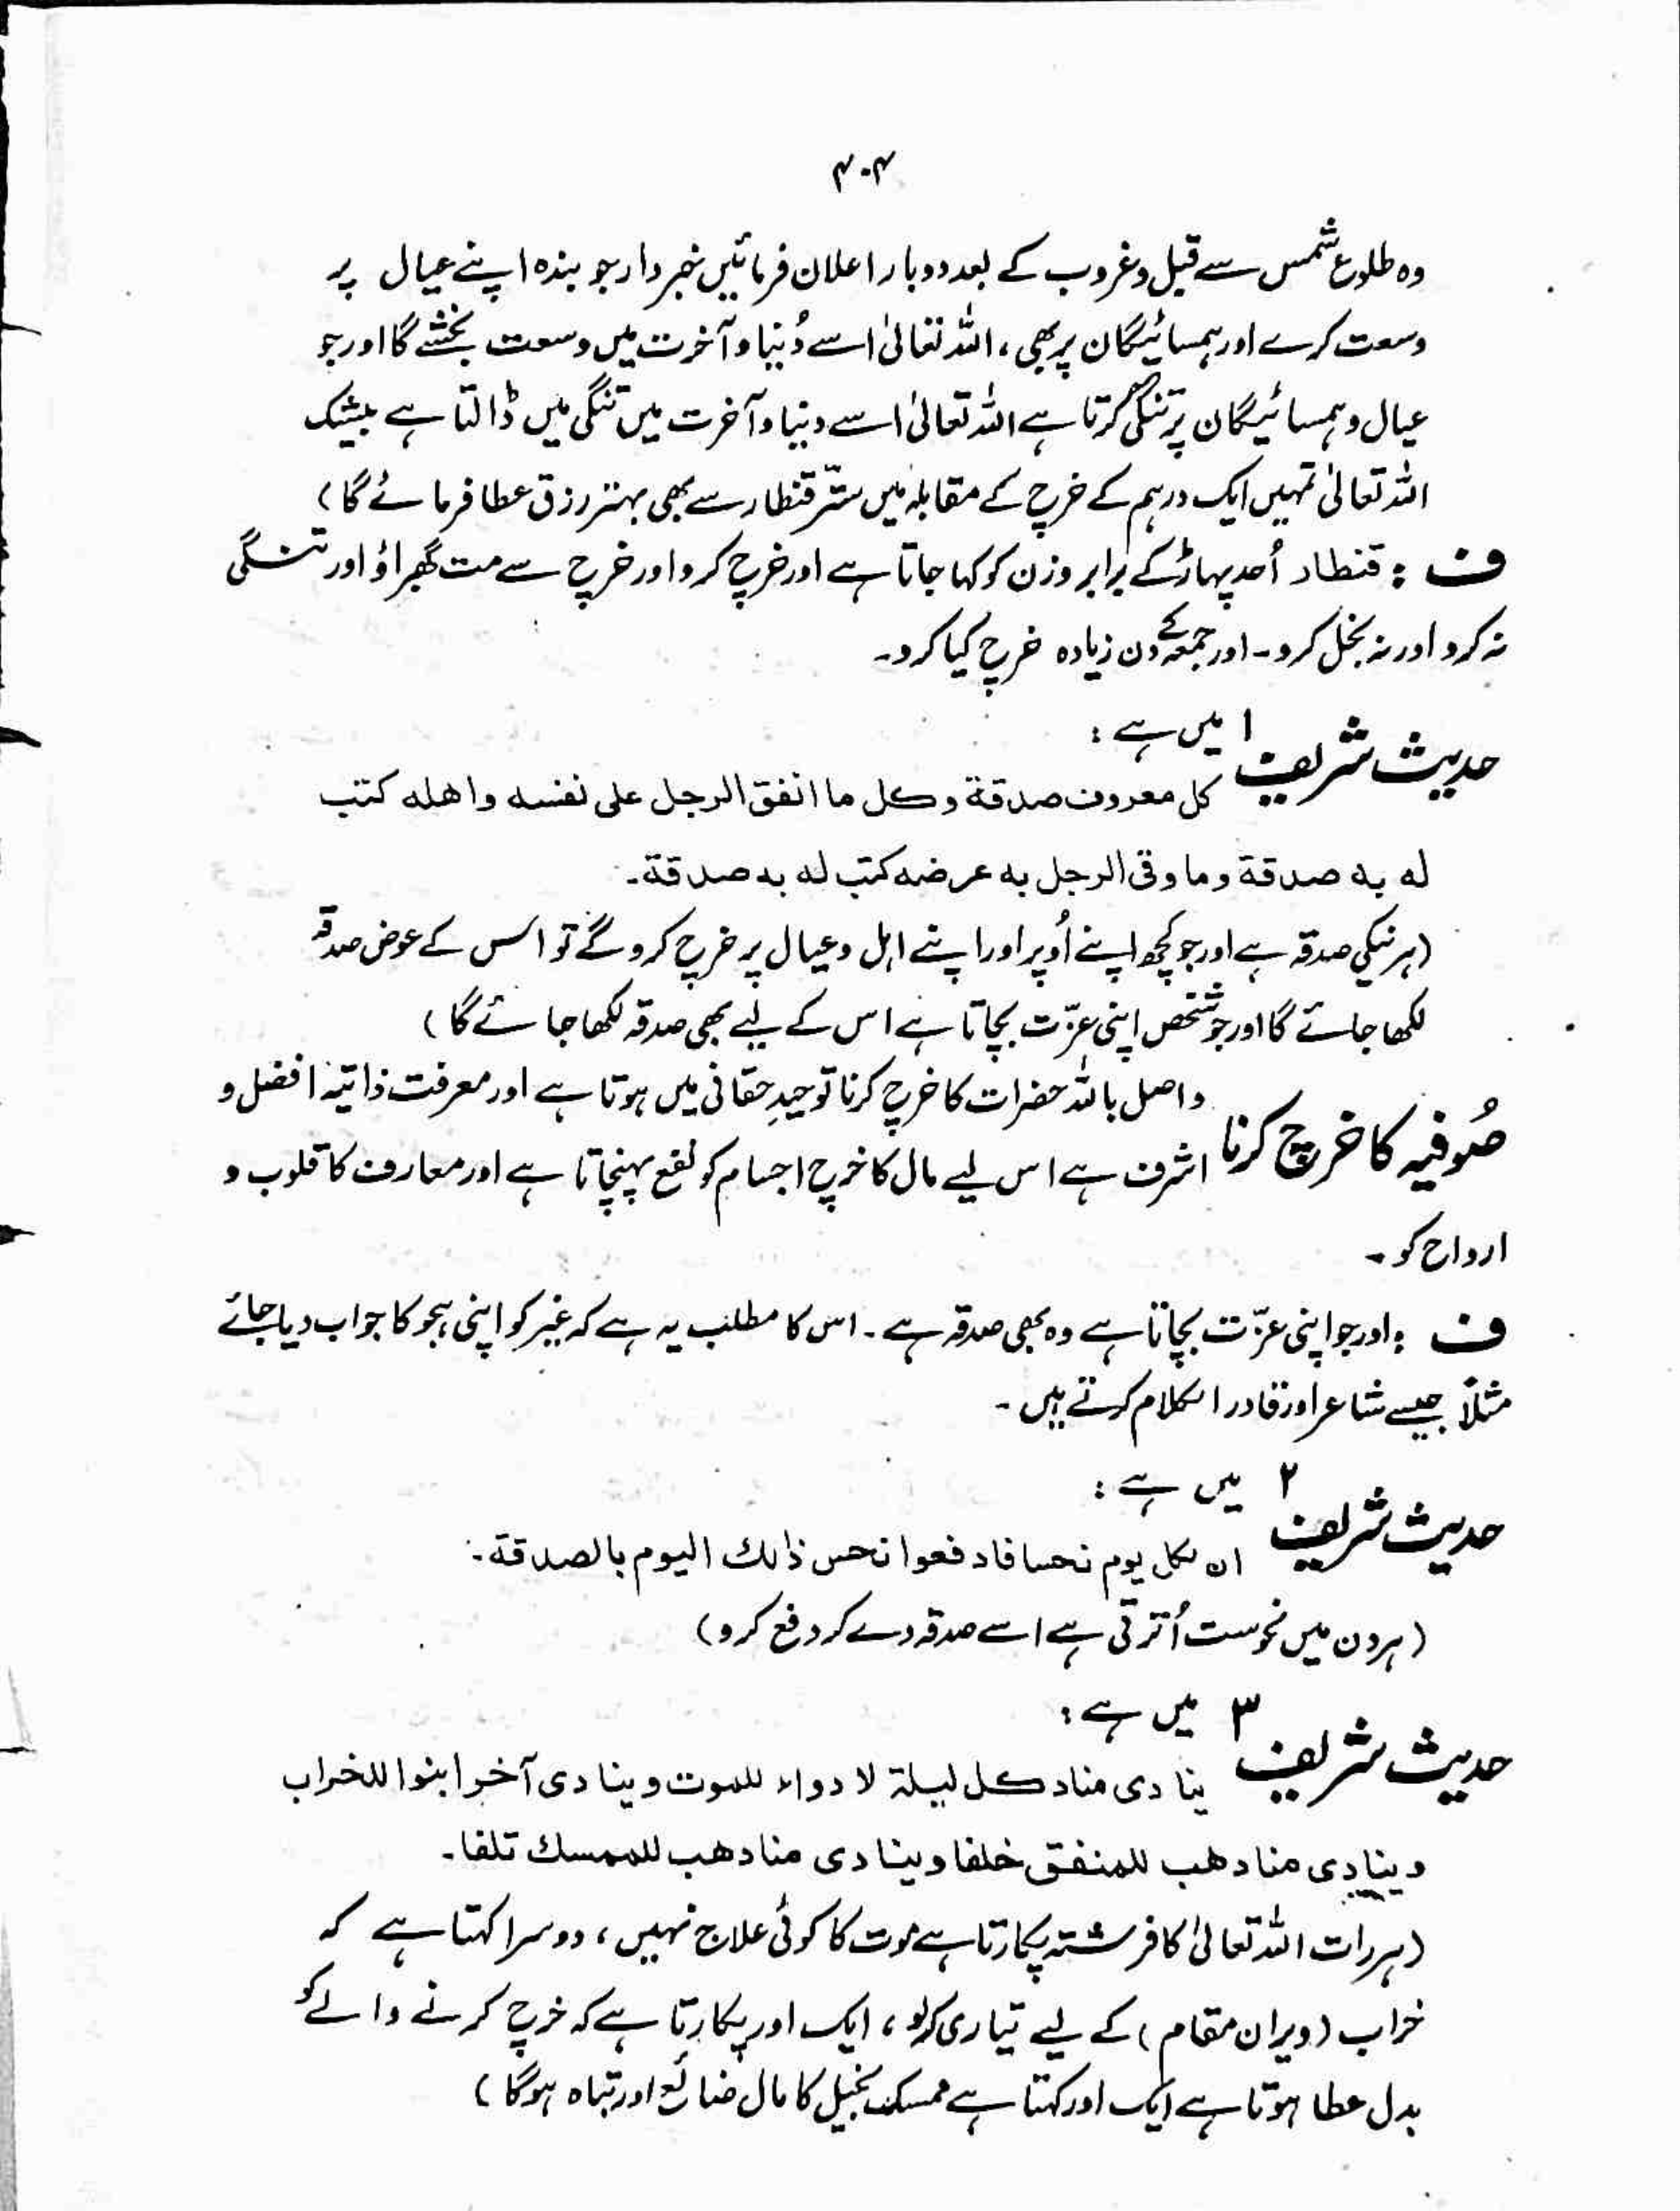 ۴۰۴
وہ طلوع شمس سے قبل و غروب کے بعد دو بار اعلان فرمائیں خبردار جو بندہ اپنے عیال پر
وسعت کرے اور ہمسائیگان پر بھی، اللہ تعالیٰ اسے دُنیا و آخرت میں وسعت بخشے گا اور جو
عیال و ہمسائیگان پر تنگی کرتا ہے اللہ تعالیٰ اسے دنیا و آخرت میں تنگی میں ڈالتا ہے بیشک
اللہ تعالیٰ تمہیں ایک درہم کے خرچ کے مقابلہ میں ستّر قنطار سے بھی بہتر رزق عطا فرمائے گا)
ف : قنطار اُحد پہاڑ کے برابر وزن کو کہا جاتا ہے اور خرچ کرو اور خرچ سے مت گھبراؤ اور تنگی
نہ کرو اور نہ بخل کرو۔ اور جمعہ کے دن زیادہ خرچ کیا کرو۔
حدیث شریف ۱ میں ہے :
كل معروف صدقة وكل ما انفق الرجل على نفسه واهله كتب
له به صدقة وما وقى الرجل به عرضه كتب له به صدقة۔
(ہر نیکی صدقہ ہے اور جو کچھ اپنے اُوپر اور اپنے اہل و عیال پر خرچ کرو گے تو اس کے عوض صدقہ
لکھا جائے گا اور جو شخص اپنی عزّت بچاتا ہے اس کے لیے بھی صدقہ لکھا جائے گا)
صُوفیہ کا خرچ کرنا واصل باللہ حضرات کا خرچ کرنا توحیدِ حقانی میں ہوتا ہے اور معرفت ذاتیہ افضل و
اشرف ہے اس لیے مال کا خرچ اجسام کو نفع پہنچاتا ہے اور معارف کا قلوب و
ارواح کو۔
ف : اور جو اپنی عزّت بچاتا ہے وہ بھی صدقہ ہے۔ اس کا مطلب یہ ہے کہ غیر کو اپنی ہجو کا جواب دیا جائے
مثلاً جیسے شاعر اور قادر الکلام کرتے ہیں۔
حدیث شریف ۲ میں ہے :
ان لكل يوم نحسا فادفعوا نحس ذالك اليوم بالصدقة۔
(ہر دن میں نحوست اُترتی ہے اسے صدقہ دے کر دفع کرو)
حدیث شریف ۳ میں ہے :
ينادى مناد كل ليلة لا دواء للموت وينادى آخر ابنوا للخراب
وينادى مناد هب للمنفق خلفا وينادى مناد هب للممسك تلفا۔
(ہر رات اللہ تعالیٰ کا فرشتہ پکارتا ہے موت کا کوئی علاج نہیں، دوسرا کہتا ہے کہ
خراب (ویران مقام) کے لیے تیاری کرلو، ایک اور پکارتا ہے کہ خرچ کرنے والے کو
بدل عطا ہوتا ہے ایک اور کہتا ہے ممسک بخیل کا مال ضائع اور تباہ ہوگا)